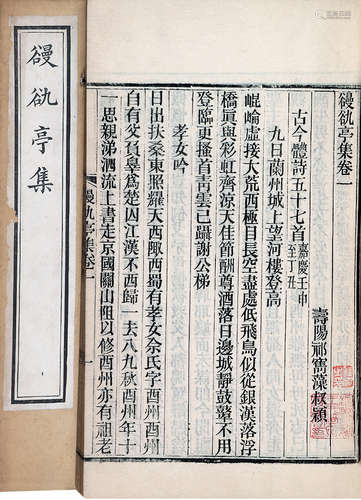 䜱䜪亭集
䜱䜪亭集卷一
壽陽祁寯藻叔穎
古今體詩五十七首嘉慶壬申至丁丑
九日蘭州城上望河樓登高
崐崘虛接大荒西極目長空盡處低飛鳥似從銀漢落浮
橋眞與彩虹齊涼天佳節酬尊酒落日邊城靜鼓鼙不用
登臨更搔首青雲已躡謝公梯
孝女吟
日出扶桑東照耀天西陬西蜀有孝女佘氏字酉州酉州
自有父負辜爲楚囚江漢不西歸一去八九秋酉州年十
一思親涕泗流上書走京國關山阻以修酉州亦有祖老
䜱䜪亭集卷一
一